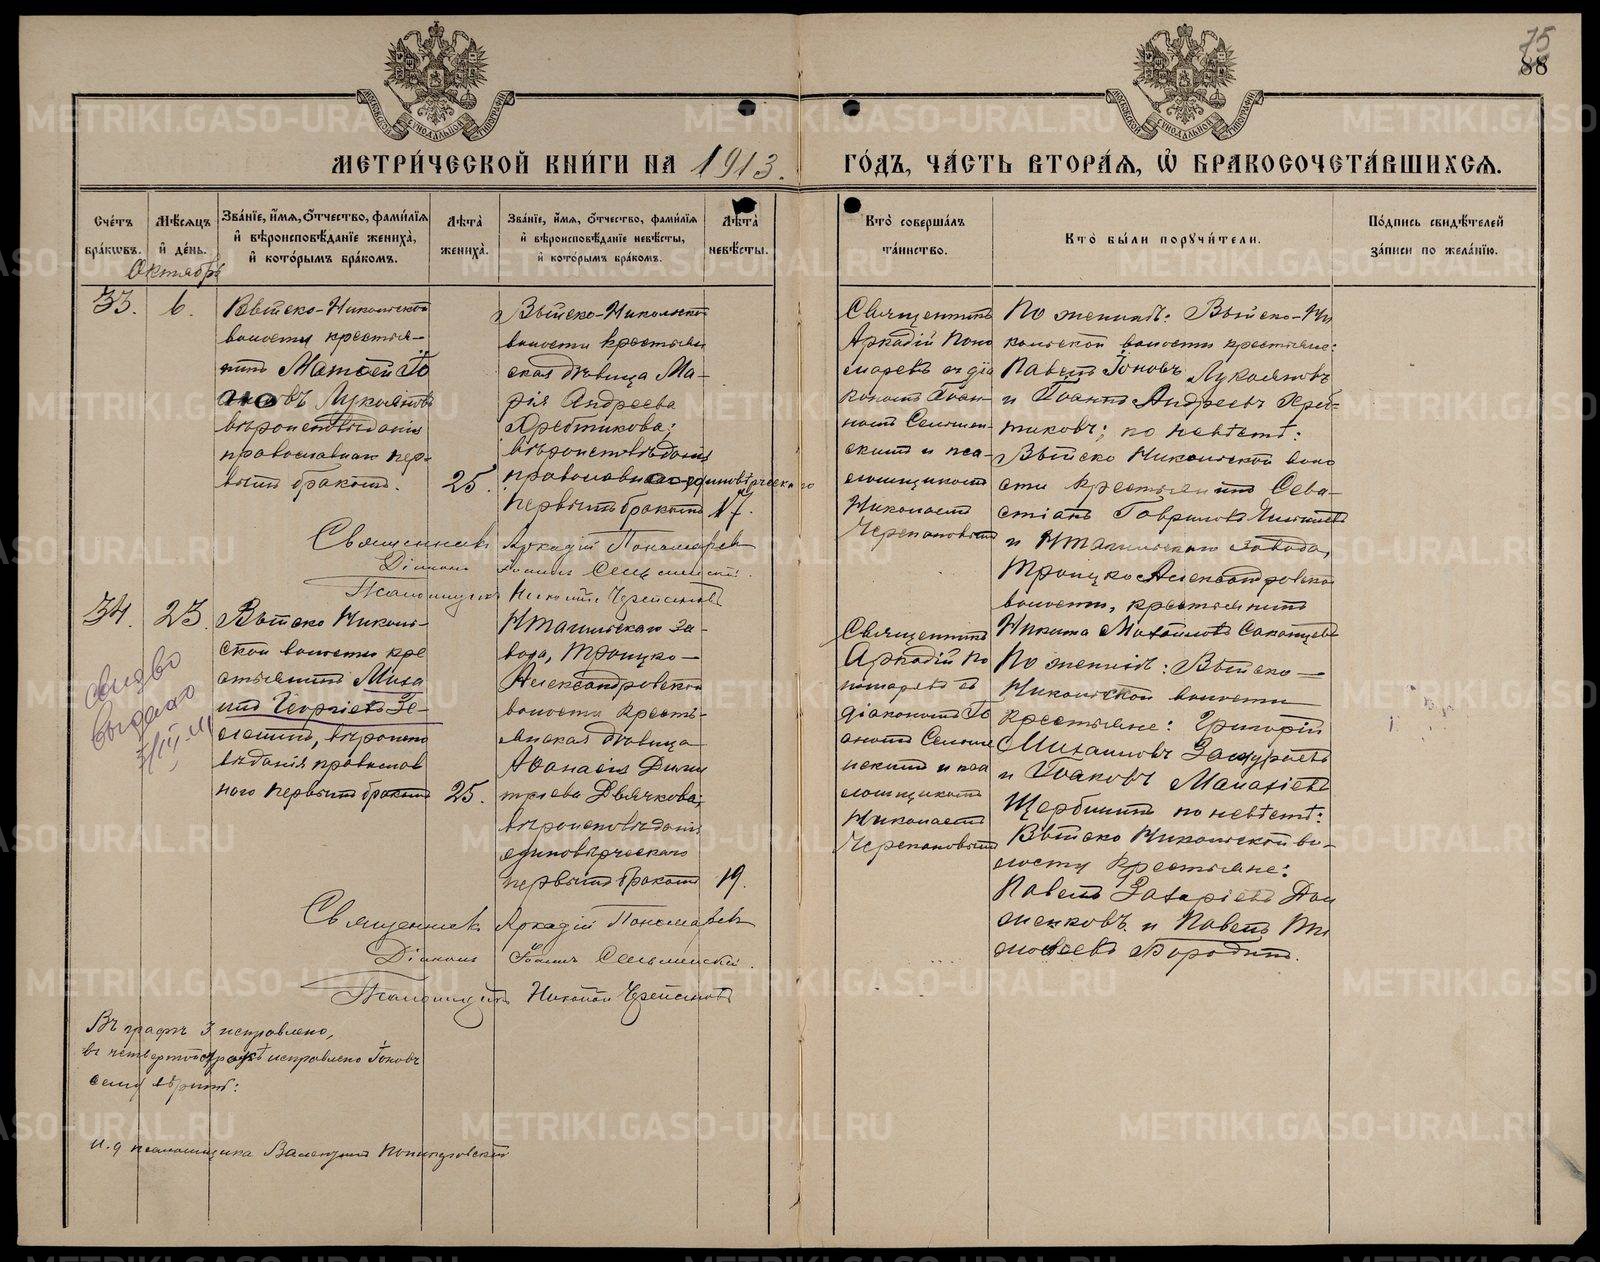 75
88
МЕТРИ́ЧЕСКОЙ КНИ́ГИ НА 1913.
ГО́ДЪ, ЧА́СТЬ ВТОРА́Я, Ѽ БРАКОСОЧЕТА́ВШИХСЯ.
Сче́тъ бра́кѡвъ.
Мѣ́сяцъ и҆ де́нь.
Октябрь
Зва́нїе, и҆́мя, ѻ҆́тчество, фами́лїя
и҆ вѣроисповѣ́данїе жениха̀,
и҆ кото́рымъ бра́комъ.
Лѣ́та жениха̀.
Зва́нїе, и҆́мя, ѻ҆́тчество, фами́лїя
и҆ вѣроисповѣ́данїе невѣ́сты,
и҆ кото́рымъ бра́комъ.
Лѣ́та невѣ́сты.
Кто̀ соверша́лъ
та́инство.
Кто̀ бы́ли порꙋчи́тели.
По́дпись свидѣ́телей
за́писи по жела́нїю.
33.
6.
Выйско-Никольской
волости крестья-
нинъ Матѳей Іо
новъ Лукояновъ
вѣроисповѣданія
православнаго пер-
вымъ бракомъ.
25.
Выйско-Никольской
волости крестьян
ская дѣвица Ма-
рія Андреева
Хребтикова;
вѣроисповѣданія
православнаго единовѣрческаго
первымъ бракомъ
17.
Священникъ
Аркадій Поно
маревъ съ діа
кономъ Іоан-
номъ Сельмен-
скимъ и пса-
ломщикомъ
Николаемъ
Черепановымъ
По женихѣ: Выйско-Ни
кольской волости крестьяне:
Павелъ Іоновъ Лукояновъ
и Іоаннъ Андреевъ Хреб-
тиковъ; по невѣстѣ:
Выйско Никольской воло
сти крестьянинъ Сева-
стіанъ Гавриловъ
и Н Тагильскаго завода,
Троицко Александровской
волости, крестьянинъ
Никита Михайловъ
Священникъ Аркадій Пономаревъ
Діаконъ Іоаннъ Сельменскій.
Псаломщикъ Николай Черепановъ
34.
23.
Выйско Николь-
ской волости кре
стьянинъ Миха
илъ Георгіевъ Зе-
ленинъ, вѣроиспо
вѣданія православ
наго первымъ бракомъ
25.
Н Тагильскаго за-
вода, Троицко-
Александровской
волости кресть-
янская дѣвица
Аѳанасія Дими
тріева Дьячкова;
вѣроисповѣданія
единовѣрческаго
первымъ бракомъ
19.
Священникъ
Аркадій По
номаревъ съ
діакономъ Іо
анномъ Сельме
нскимъ и пса
ломщикомъ
Николаемъ
Черепановымъ
По женихѣ: Выйско-
Никольской волости
крестьяне: Григорій
Михайловъ
и Іоаковъ Малахіевъ
Щербининъ по невѣстѣ:
Выйско Никольской во-
лости крестьяне:
Павелъ Захаріевъ Дол
женковъ и Павелъ Ти
моѳеевъ Бородинъ.
Священникъ Аркадій Пономаревъ
Діаконъ Іоаннъ Сельменскій.
Псаломщикъ Николай Черепановъ
свид-во
выдано
Въ графѣ 3 исправлено,
въ четвертой строкѣ исправлено Іоновъ
сему вѣрить:
и. д псаломщика Валентинъ
METRIKI.GASO-URAL.RU